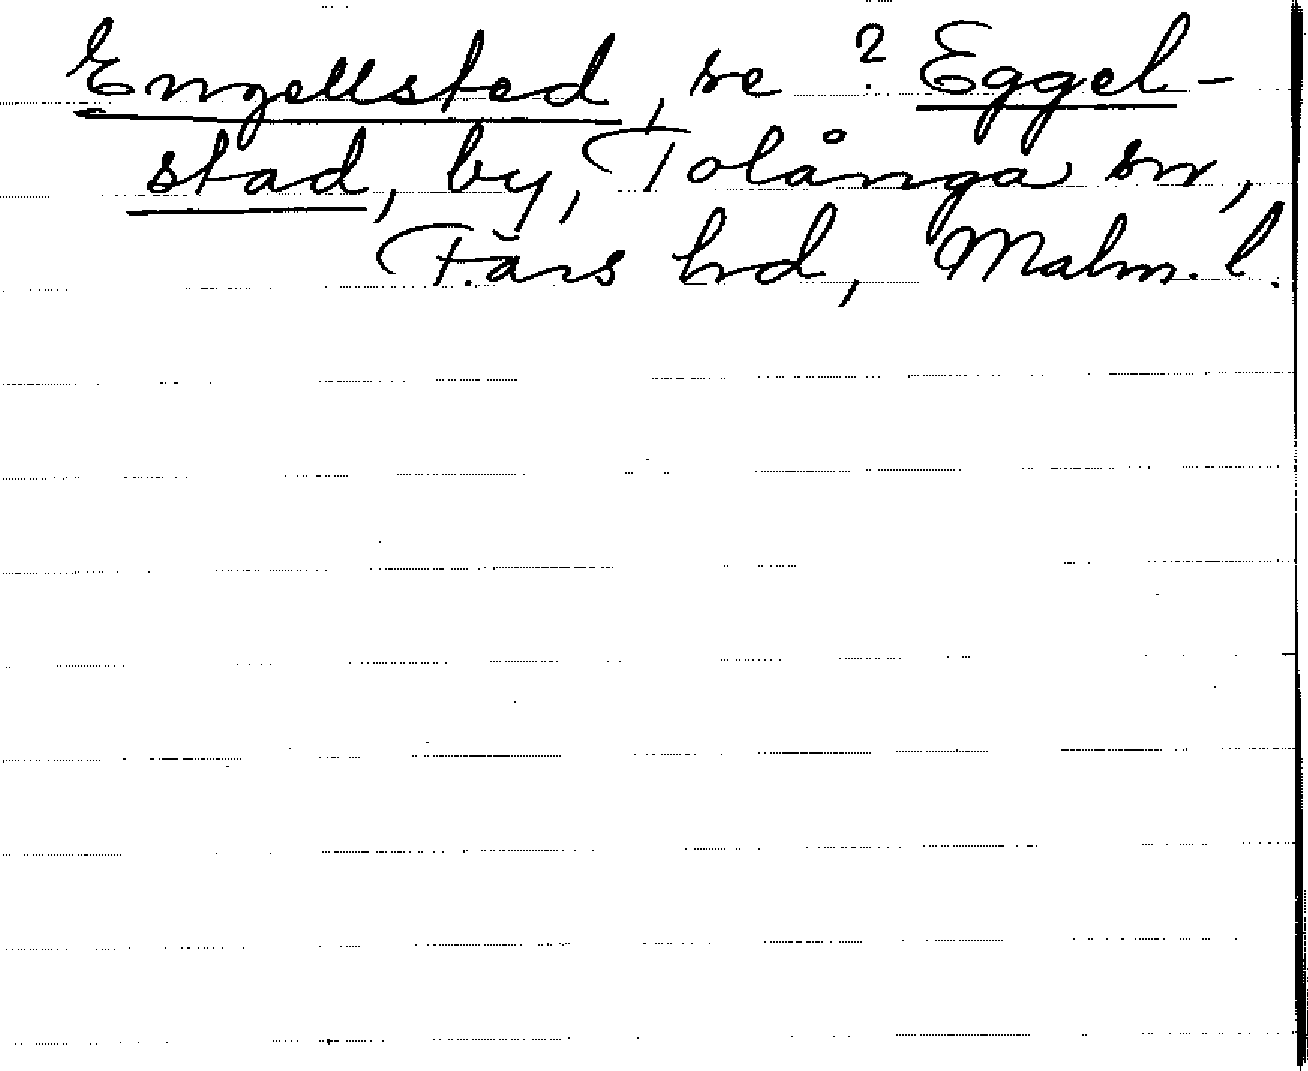 Engellsted, se ? Eggel-
stad, by, Tolånga sn,
Färs hd, Malm. l.